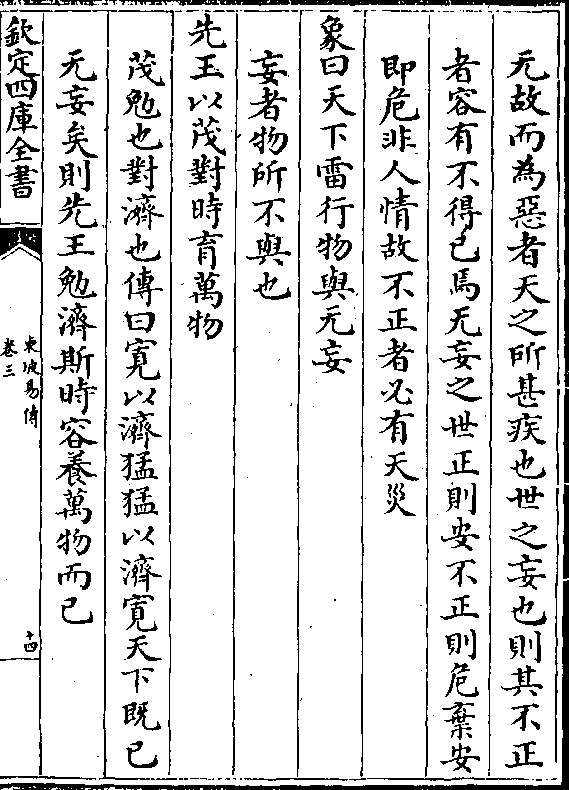 无故而為惡者天之所甚疾也世之妄也則其不正
者容有不得已焉无妄之世正則安不正則危棄安
即危非人情故不正者必有天災
象曰天下雷行物與无妄
妄者物所不與也
先王以茂對時育萬物
茂勉也對濟也傳曰寛以濟猛猛以濟寛天下既已
无妄矣則先王勉濟斯時容養萬物而已
欽定四庫全書
東坡易傳
卷三
十四